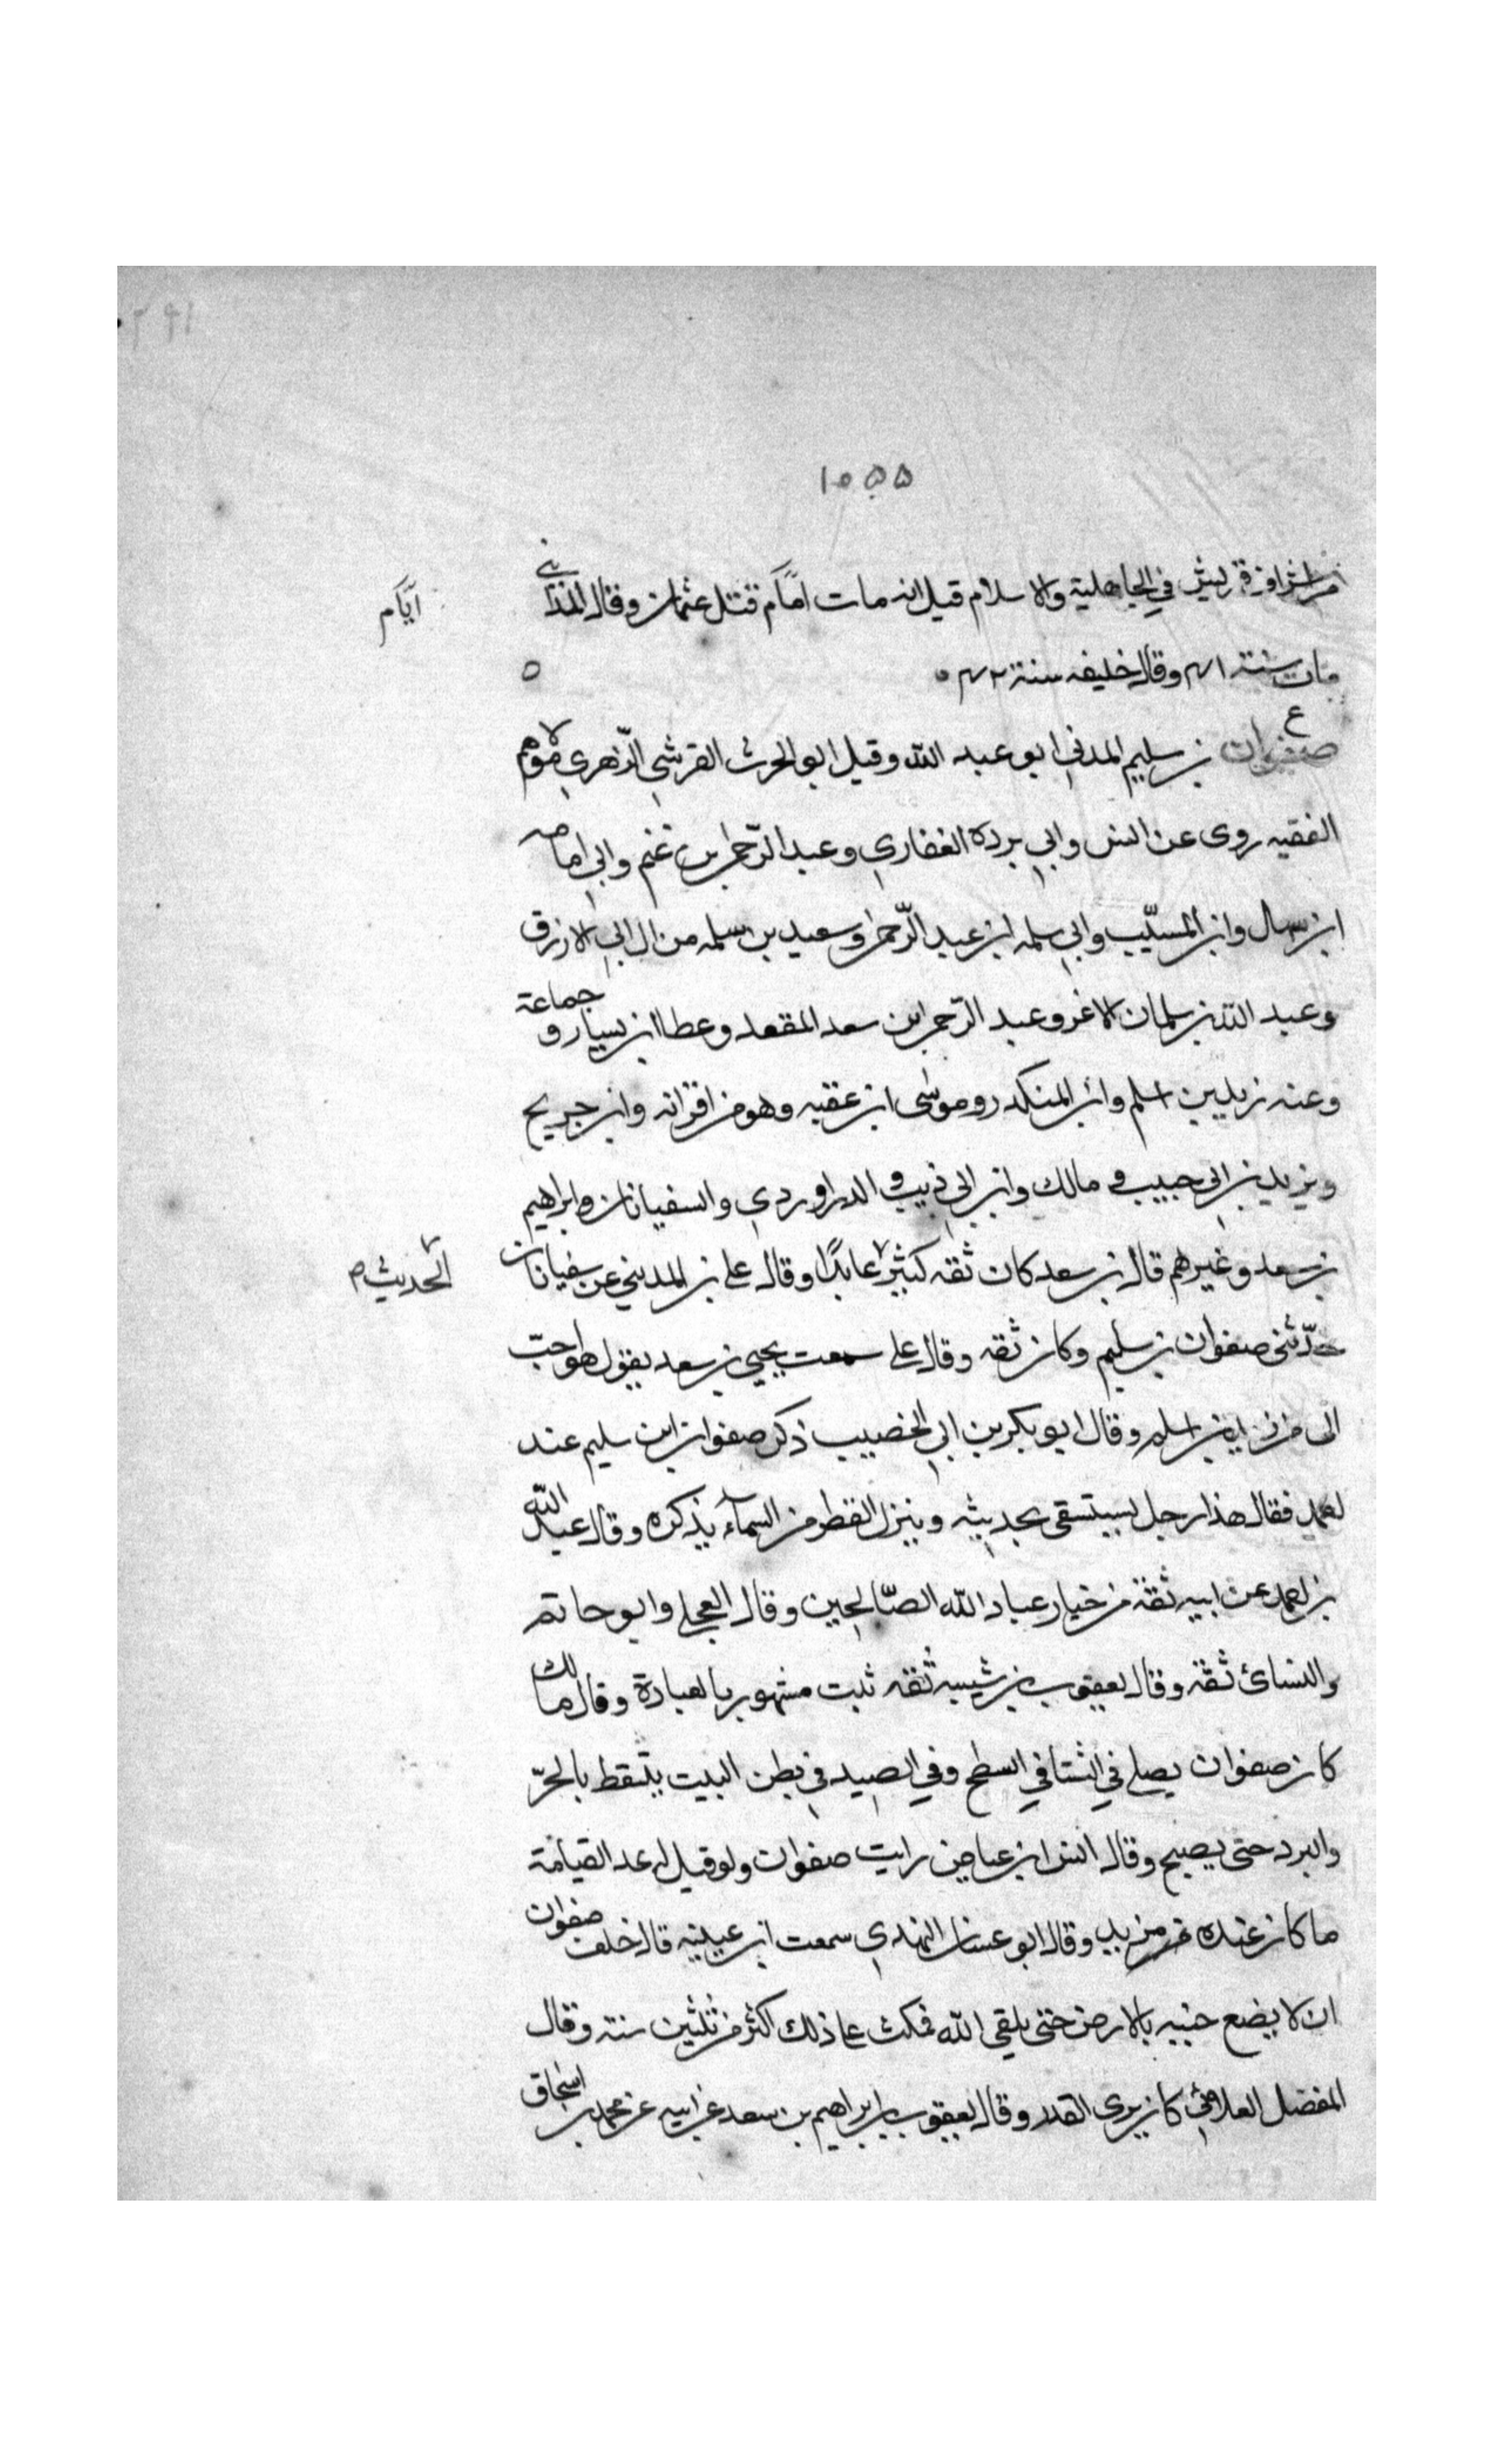 ١٠٥٥
من اشراف قريش في الجاهلية والاسلام قيل انه مات امام قتل عثمان وقال المدائني
ايّام
مات سنة ٤١ وقال خليفه سنة ٤٢ ٥
ع
صفوان بن سليم المدني ابو عبد الله وقيل ابو الحرث القرشي الزّهري مولاهم
الفقيه روى عن انس وابي بردة الغفاري وعبد الرّحمن بن غنم وابي امامه
ابن سهل وابن المسيّب وابي سلمه ابن عبد الرّحمن وسعيد بن سلمه من ال ابي الازرق
وعبد الله بن سلمان الاغر وعبد الرّحمن ابن سعد المقعد وعطا ابن يسار وجماعة
وعنه زيد بن اسلم وابن المنكدر وموسى ابن عقبه وهو من اقرانه وابن جريج
ويزيد بن ابي حبيب ومالك وابن ابي ذيب والدراوردي والسفيانان وابراهيم
بن سعد وغيرهم قال بن سعد كان ثقه كثير عابدًا وقال علي بن المديني عن سفيانان
الحديث ص
حدّثني صفوان بن سليم وكان ثقه وقال علي سمعت يحيي بن سعد يقول هو احبّ
الى من زيد بن اسلم وقال ابو بكر بن ابي الخصيب ذكر صفوان ابن سليم عند
احمد فقال هذا رجل يستسقى بحديثه وينزل القطر من السمآء بذكره وقال عبد الله
بن احمد عن ابيه ثقة من خيار عباد الله الصّالحين وقال العجلي وابو حاتم
والنسائ ثقة وقال يعقوب بن شيبه ثقه ثبت مشهور بالعبادة وقال مالك
كان صفوان يصلي في الشتا في السطح وفي الصيد في بطن البيت يتيقظ بالحرّ
والبرد حتى يصبح وقال انس ابن عياض رايت صفوان ولو قيل له غد القيامة
ما كان عنده مزيد وقال ابو غسان النهدي سمعت ابن عيينه قال حلف صفوان
ان لا يضع جنبه بالارض حتى يلقي الله فمكث على ذلك اكثر من ثلثين سنة وقال
المفضل الغلابي كان يرى القدر وقال يعقوب بن ابراهيم بن سعد عن ابيه عن محمد بن اسحاق